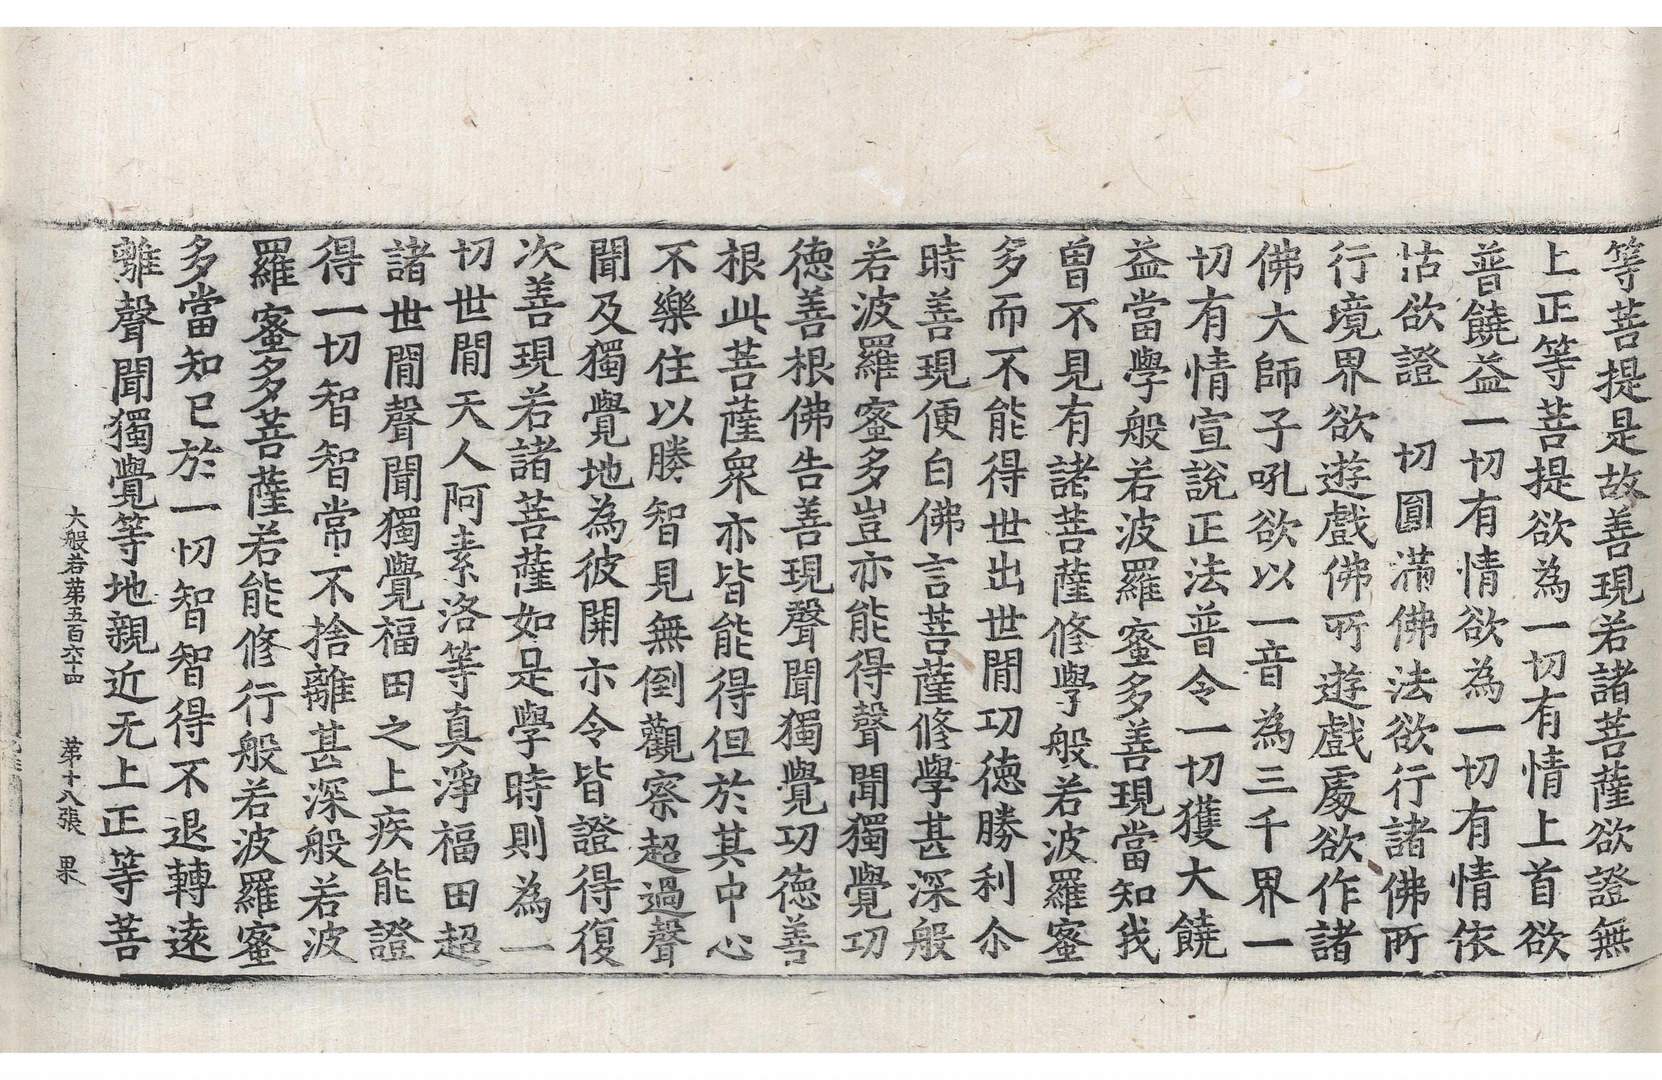 等菩提是故善現若諸菩薩欲證無
上正等菩提欲為一切有情上首欲
普饒益一切有情欲為一切有情依
怙欲證 切圓滿佛法欲行諸佛所
行境界欲遊戲佛所遊戲處欲作諸
佛大師子吼欲以一音為三千界一
切有情宣說正法普令一切獲大饒
益當學般若波羅蜜多善現當知我
曾不見有諸菩薩修學般若波羅蜜
多而不能得世出世閒功德勝利尒
時善現便白佛言菩薩修學甚深般
若波羅蜜多豈亦能得聲聞獨覺功
德善根佛告善現聲聞獨覺功德善
根此菩薩衆亦皆能得但於其中心
不樂住以勝智見無倒觀察超過聲
聞及獨覺地為彼開示令皆證得復
次善現若諸菩薩如是學時則為一
切世閒天人阿素洛等真淨福田超
諸世閒聲聞獨覺福田之上疾能證
得一切智智常不捨離甚深般若波
羅蜜多菩薩若能修行般若波羅蜜
多當知已於一切智智得不退轉遠
離聲聞獨覺等地親近无上正等菩
大般若第五百六十四 第十八張 果